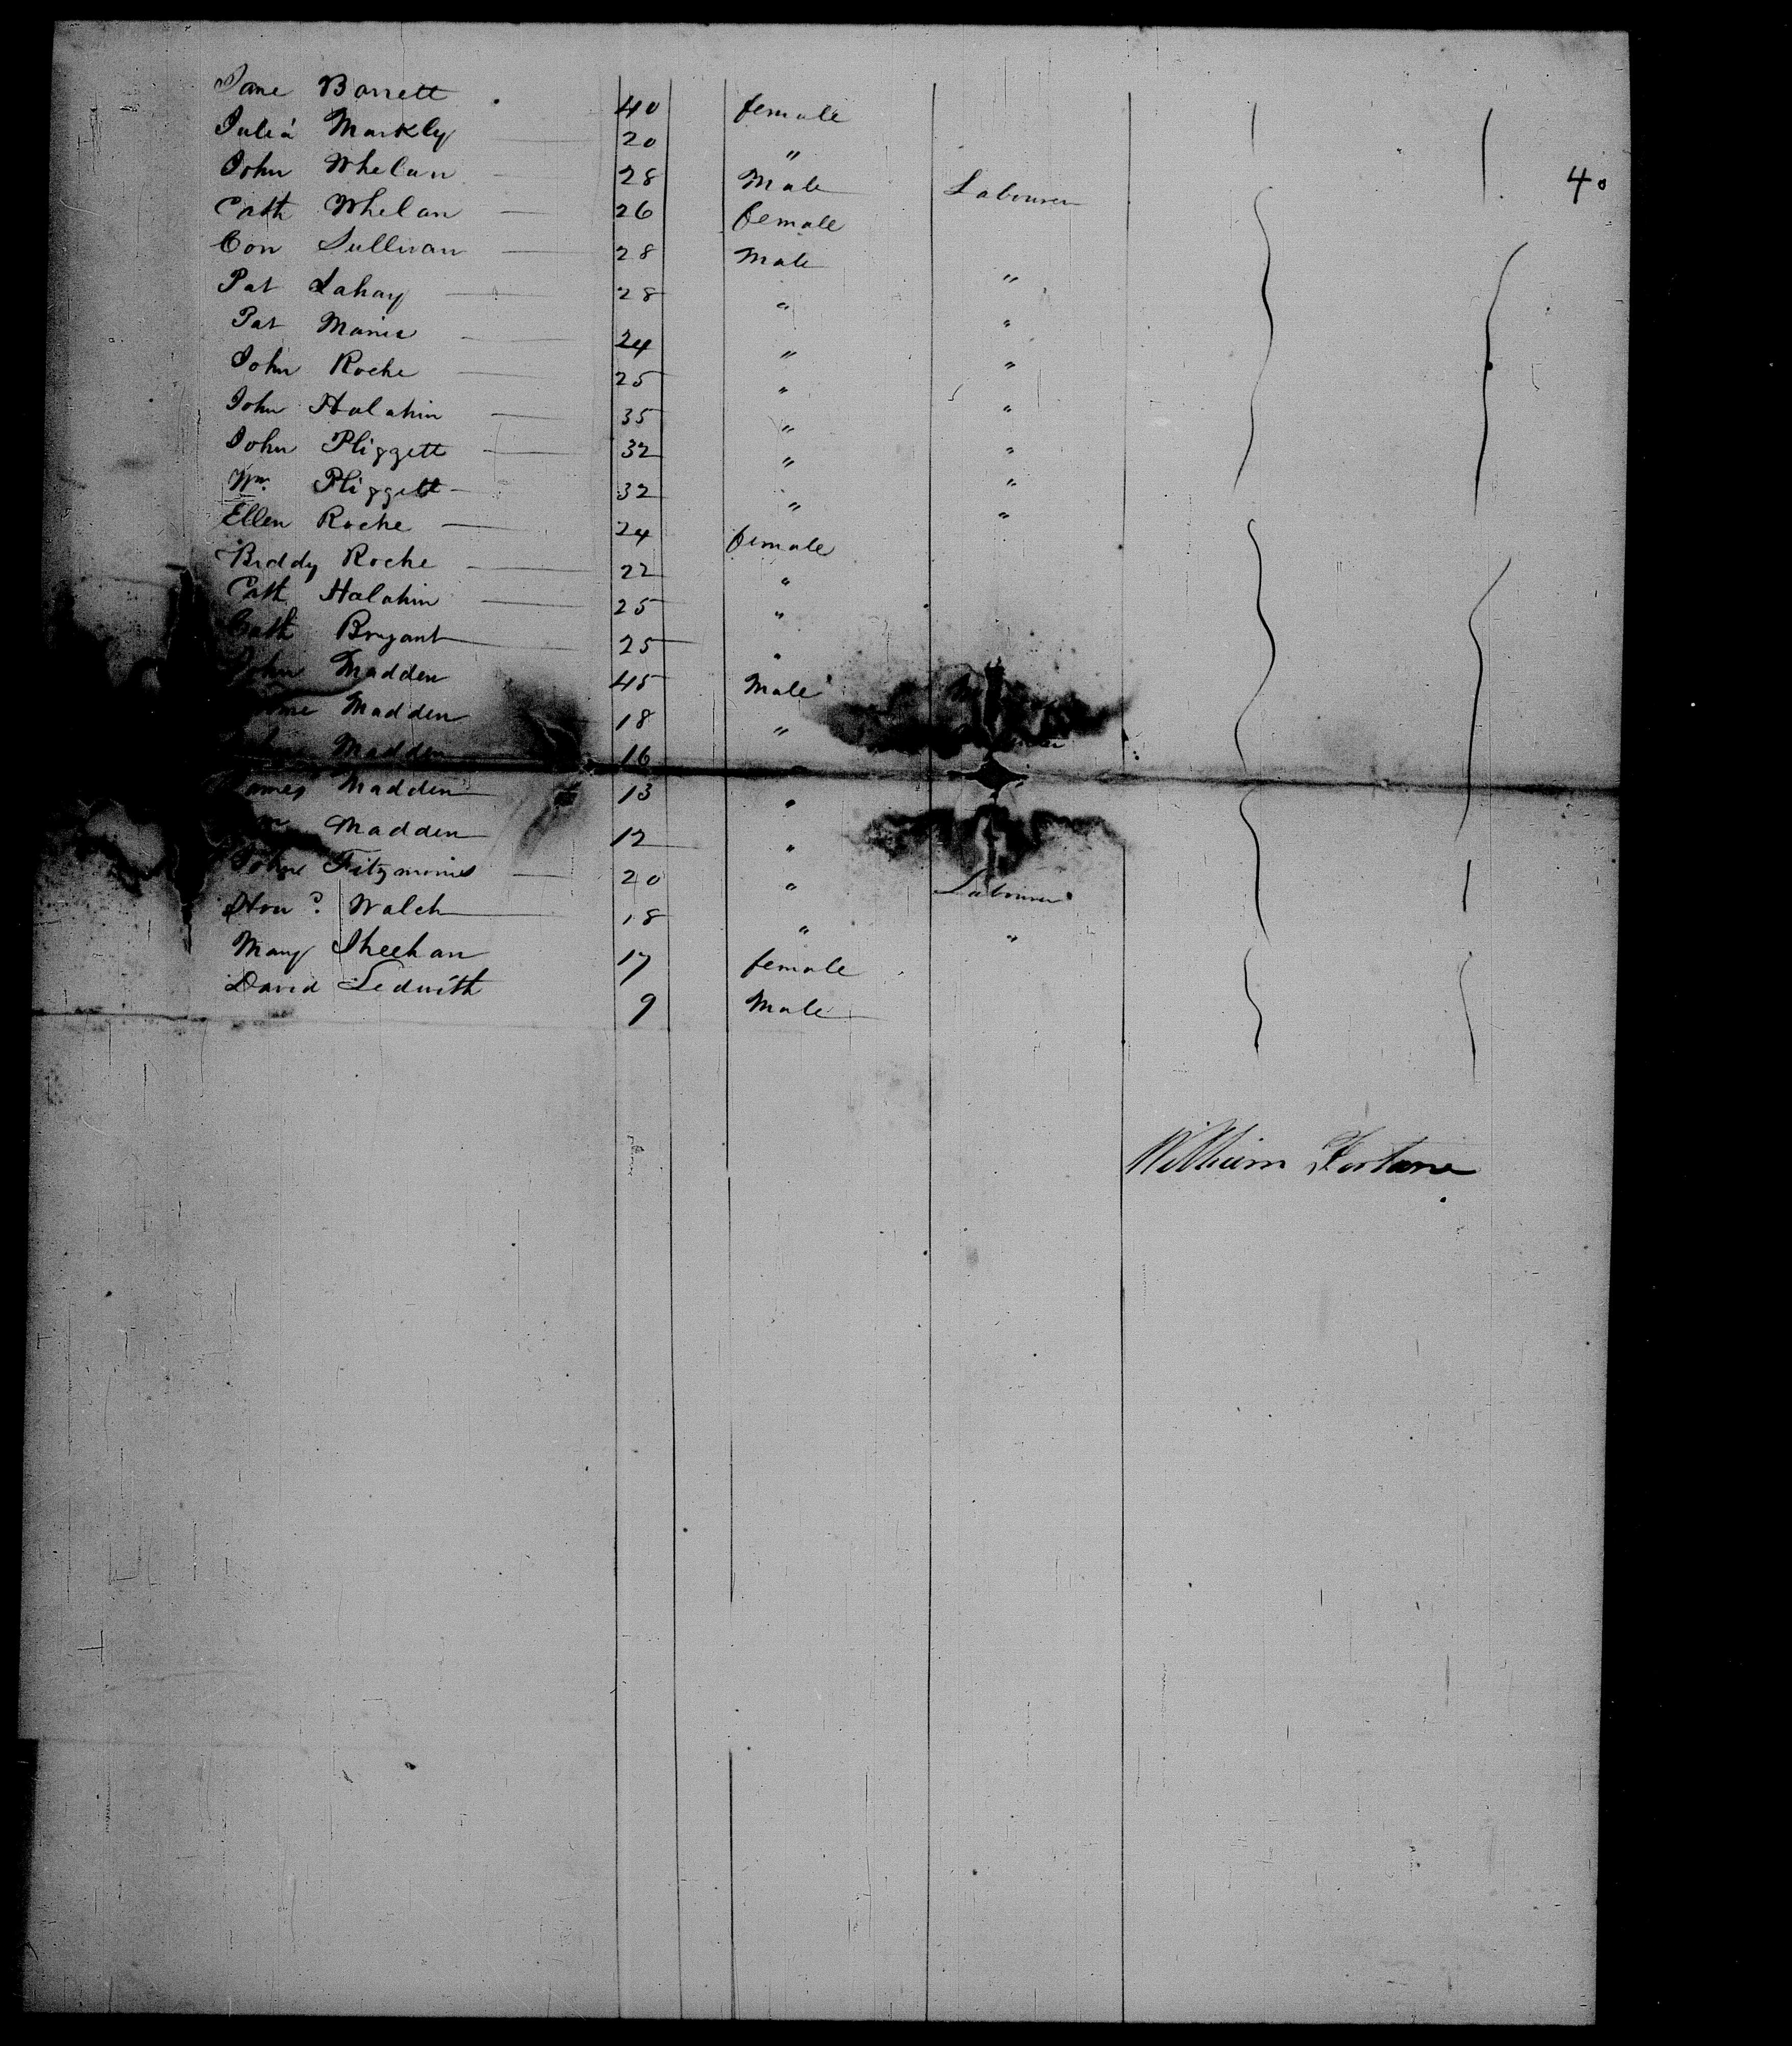 Jane Barrett 40 female
Julia Markly 20 "
John Whelan 28 Male Labourer
Cath Whelan 26 female
Con Sullivan 28 Male "
Pat Lahay 28 " "
Pat Manie 24 " "
John Roche 25 " "
John Halahin 35 " "
John Pliggett 32 " "
Wm. Pliggett 32 " "
Ellen Roche 24 female
Biddy Roche 22 "
Cath Halahin 25 "
Cath Bryant 25 "
John Madden 45 Male
Madden 18 "
Madden 16
James Madden 13 "
Madden 12 "
John Fitzmorris 20 " Labourer
Walch 18 " "
Mary Sheehan 17 female
David Ledwith 9 Male
40
William Fortune